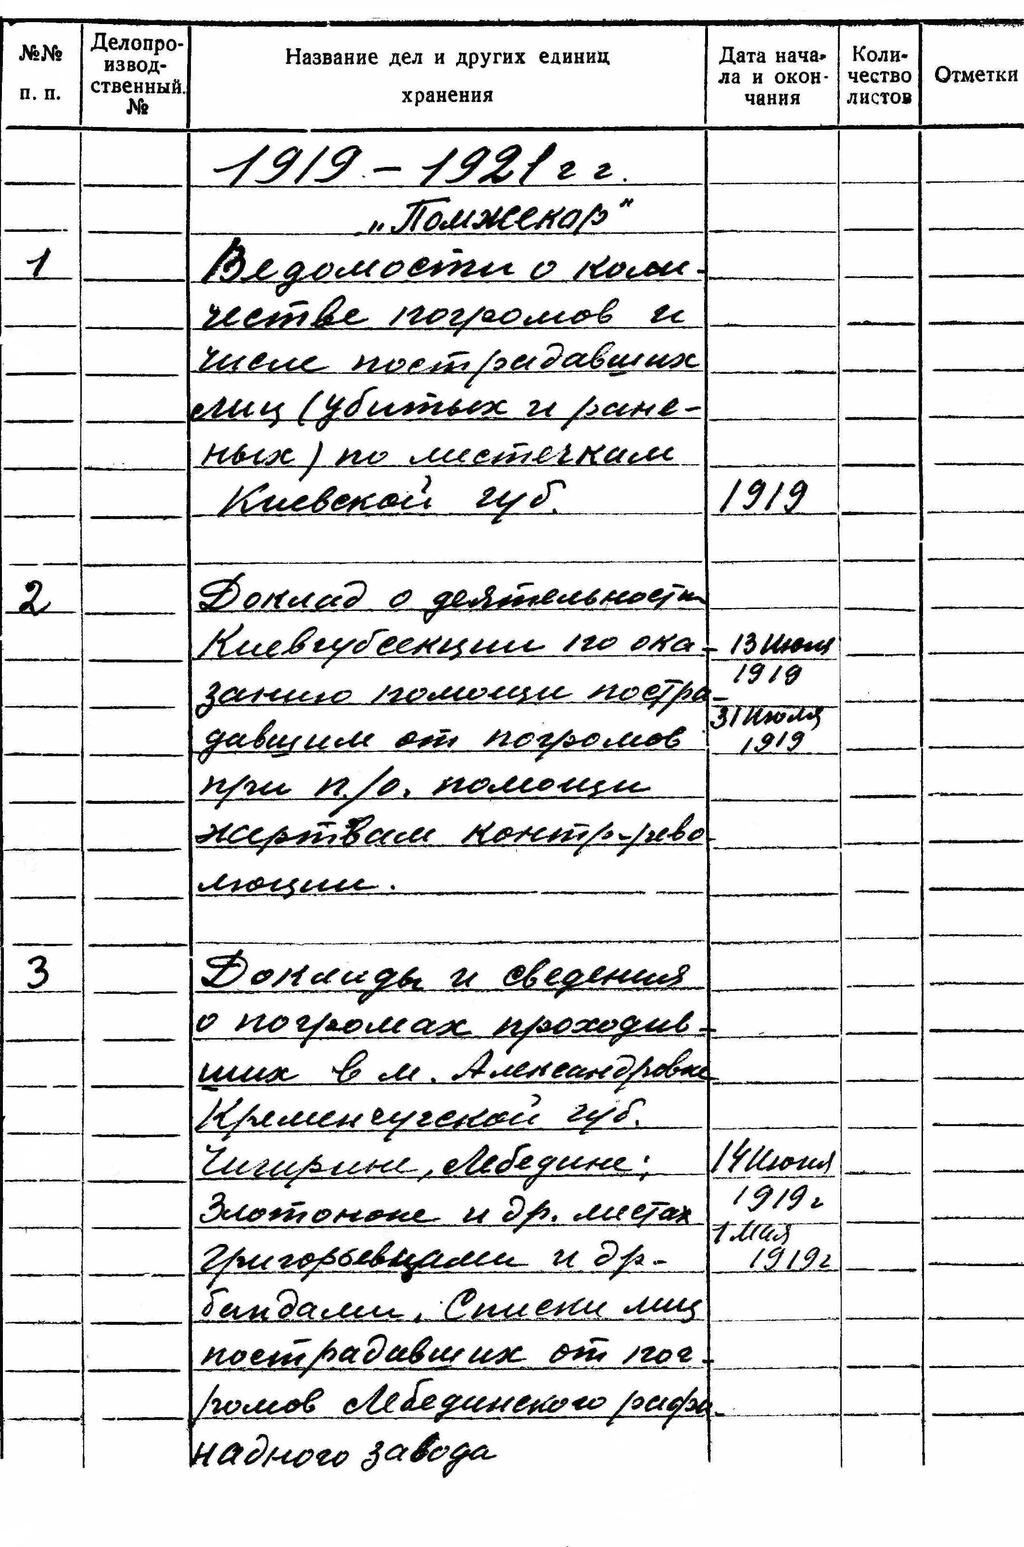 №№ п. п.
Делопро-
извод-
ственный.
№
Название дел и других единиц
хранения
Дата нача-
ла и окон-
чания
Коли-
чество
листов
Отметки
1919 – 1921 гг.
„Помжекар"
1 Ведомости о коли-
честве погромов и
числе пострадавших
лиц (убитых и ране-
ных) по местечкам
Киевской губ. 1919
2 Доклад о деятельности
Киевгубсекции по ока- 13 Июля
1919
занию помощи постра- 31 Июля
1919
давшим от погромов
при п./о. помощи
жертвам контр-рево
люции.
3 Доклады и сведения
о погромах проходив-
ших в м. Александровке
Кременчугской губ.
Чигирине, Лебедине; 14 Июня
1919 г
Золотоноше и др. местах 1 Мая
1919 г
григорьевцами и др-
бандами. Списки лиц
пострадавших от пог-
ромов Лебединского рафи
надного завода